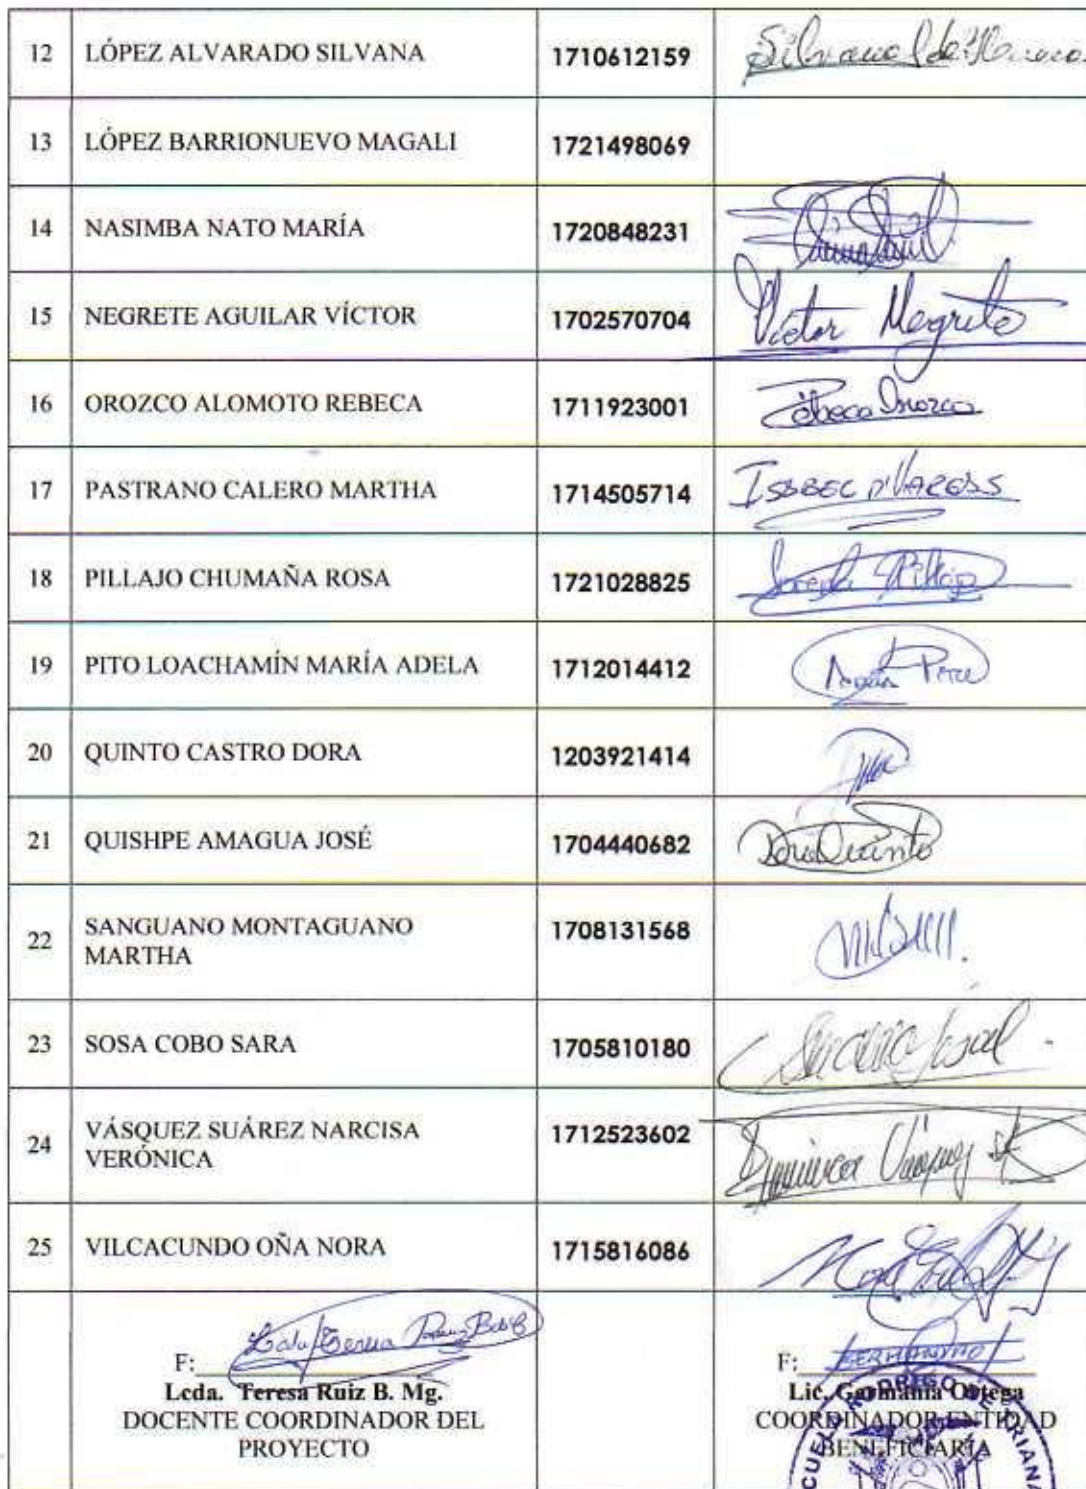 12 LÓPEZ ALVARADO SILVANA 1710612159
13 LÓPEZ BARRIONUEVO MAGALI 1721498069
14 NASIMBA NATO MARÍA 1720848231
15 NEGRETE AGUILAR VÍCTOR 1702570704 Víctor Negrete
16 OROZCO ALOMOTO REBECA 1711923001 Rebeca Orozco
17 PASTRANO CALERO MARTHA 1714505714
18 PILLAJO CHUMAÑA ROSA 1721028825 Pillajo
19 PITO LOACHAMÍN MARÍA ADELA 1712014412
20 QUINTO CASTRO DORA 1203921414
21 QUISHPE AMAGUA JOSÉ 1704440682 Dora Quinto
22 SANGUANO MONTAGUANO
MARTHA 1708131568
23 SOSA COBO SARA 1705810180
24 VÁSQUEZ SUÁREZ NARCISA
VERÓNICA 1712523602
25 VILCACUNDO OÑA NORA 1715816086
F:
Lcda. Teresa Ruiz B. Mg.
DOCENTE COORDINADOR DEL
PROYECTO
F:
Lic. Germania Ortega
COORDINADOR ENTIDAD
BENEFICIARIA